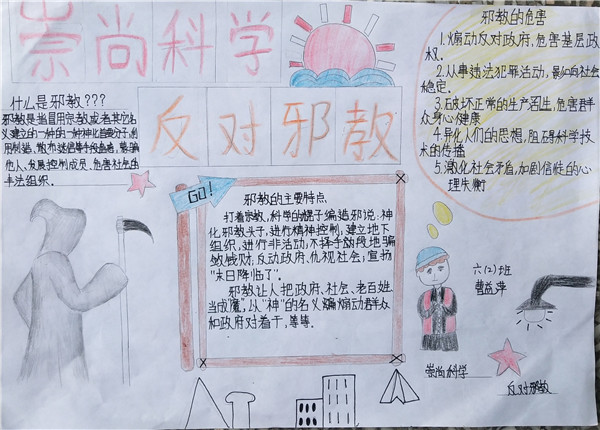 崇尚科学
反对邪教
什么是邪教???
邪教是指冒用宗教或者其它名
义建立的一种的一种神化首要分子,利
用制造、散布迷信等手段蛊惑、蒙骗
他人、发展控制成员、危害社会的
非法组织.
邪教的危害
1.煽动反对政府,危害基层政
权.
2.从事违法犯罪活动,影响社会
稳定.
3.破坏正常的生产生活,危害群
众身心健康
4.异化人们的思想,阻碍科学技
术的传播
5.激化社会矛盾,加剧信性的心
理失衡
GO!
邪教的主要特点
打着宗教,科学的幌子编造邪说:神
化邪教头子,进行精神控制,建立地下
组织,进行非活动,不择手段地骗
敛钱财,反动政府、仇视社会;宣扬
"末日降临了".
邪教让人把政府、社会、老百姓
当成"魔",以"神"的名义骗煽动群众
和政府对着干,等等.
六(2)班
曹益萍
崇尚科学
反对邪教